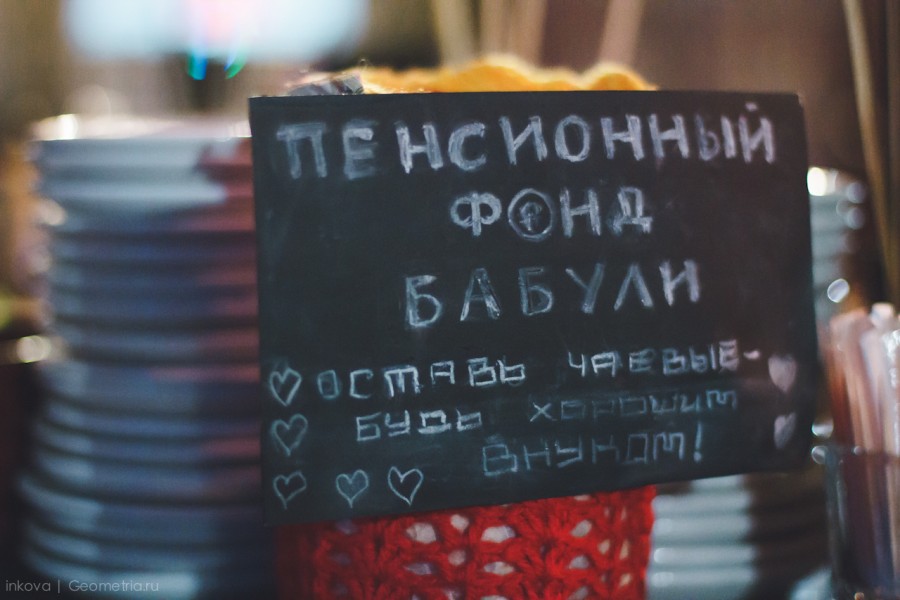 ПЕНСИОННЫЙ
ФОНД
БАБУЛИ
ОСТАВЬ ЧАЕВЫЕ-
БУДЬ ХОРОШИМ
ВНУКОМ!
inkova | Geometria.ru